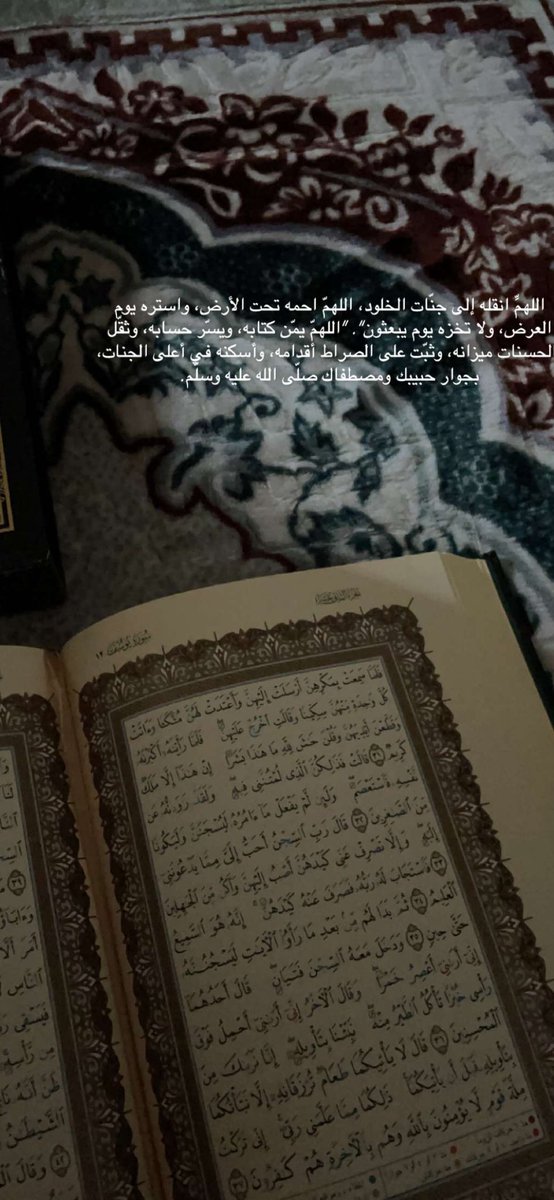 اللهمَّ انقله إلى جنّات الخلود، اللهمّ احمه تحت الأرض، واستره يوم
العرض، ولا تخزه يوم يبعثون”. ”اللهمّ يمّن كتابه، ويسّر حسابه، وثقّل
لحسنات ميزانه، وثبّت على الصراط أقدامه، وأسكنه في أعلى الجنات،
بجوار حبيبك ومصطفاك صلّى الله عليه وسلم.
الجزء الثاني عشر
سورة يوسف ١٢
فَلَمَّا سَمِعَتْ بِمَكْرِهِنَّ أَرْسَلَتْ إِلَيْهِنَّ وَأَعْتَدَتْ لَهُنَّ مُتَّكَـًٔا وَءَاتَتْ
كُلَّ وَٰحِدَةٍ مِّنْهُنَّ سِكِّينًا وَقَالَتِ ٱخْرُجْ عَلَيْهِنَّ ۖ فَلَمَّا رَأَيْنَهُۥٓ أَكْبَرْنَهُۥ
وَقَطَّعْنَ أَيْدِيَهُنَّ وَقُلْنَ حَٰشَ لِلَّهِ مَا هَٰذَا بَشَرًا إِنْ هَٰذَآ إِلَّا مَلَكٌ
كَرِيمٌ ٣١ قَالَتْ فَذَٰلِكُنَّ ٱلَّذِى لُمْتُنَّنِى فِيهِ ۖ وَلَقَدْ رَٰوَدتُّهُۥ عَن
نَّفْسِهِۦ فَٱسْتَعْصَمَ ۖ وَلَئِن لَّمْ يَفْعَلْ مَآ ءَامُرُهُۥ لَيُسْجَنَنَّ وَلَيَكُونًا
مِّنَ ٱلصَّٰغِرِينَ ٣٢ قَالَ رَبِّ ٱلسِّجْنُ أَحَبُّ إِلَىَّ مِمَّا يَدْعُونَنِىٓ
إِلَيْهِ ۖ وَإِلَّا تَصْرِفْ عَنِّى كَيْدَهُنَّ أَصْبُ إِلَيْهِنَّ وَأَكُن مِّنَ ٱلْجَٰهِلِينَ
٣٣ فَٱسْتَجَابَ لَهُۥ رَبُّهُۥ فَصَرَفَ عَنْهُ كَيْدَهُنَّ ۚ إِنَّهُۥ هُوَ ٱلسَّمِيعُ
ٱلْعَلِيمُ ٣٤ ثُمَّ بَدَا لَهُم مِّنۢ بَعْدِ مَا رَأَوُا۟ ٱلْـَٔايَٰتِ لَيَسْجُنُنَّهُۥ
حَتَّىٰ حِينٍ ٣٥ وَدَخَلَ مَعَهُ ٱلسِّجْنَ فَتَيَانِ ۖ قَالَ أَحَدُهُمَآ
إِنِّىٓ أَرَىٰنِىٓ أَعْصِرُ خَمْرًا ۖ وَقَالَ ٱلْـَٔاخَرُ إِنِّىٓ أَرَىٰنِىٓ أَحْمِلُ فَوْقَ
رَأْسِى خُبْزًا تَأْكُلُ ٱلطَّيْرُ مِنْهُ ۖ نَبِّئْنَا بِتَأْوِيلِهِۦٓ ۖ إِنَّا نَرَىٰكَ مِنَ
ٱلْمُحْسِنِينَ ٣٦ قَالَ لَا يَأْتِيكُمَا طَعَامٌ تُرْزَقَانِهِۦٓ إِلَّا نَبَّأْتُكُمَا
بِتَأْوِيلِهِۦ قَبْلَ أَن يَأْتِيَكُمَا ۚ ذَٰلِكُمَا مِمَّا عَلَّمَنِى رَبِّىٓ ۚ إِنِّى تَرَكْتُ
مِلَّةَ قَوْمٍ لَّا يُؤْمِنُونَ بِٱللَّهِ وَهُم بِٱلْـَٔاخِرَةِ هُمْ كَٰفِرُونَ ٣٧